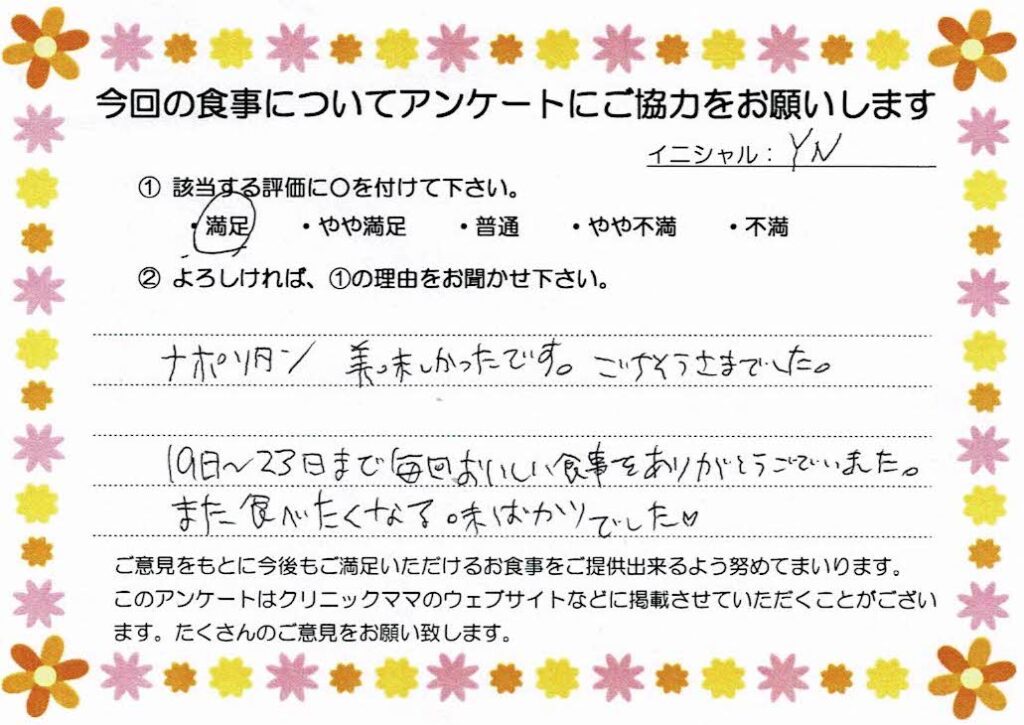 今回の食事についてアンケートにご協力をお願いします
イニシャル：YN
① 該当する評価に〇を付けて下さい。
・満足 ・やや満足 ・普通 ・やや不満 ・不満
② よろしければ、①の理由をお聞かせ下さい。
ナポリタン 美味しかったです。ごちそうさまでした。
19日〜23日まで毎回おいしい食事をありがとうございました。
また食べたくなる味ばかりでした♡
ご意見をもとに今後もご満足いただけるお食事をご提供出来るよう努めてまいります。
このアンケートはクリニックママのウェブサイトなどに掲載させていただくことがござい
ます。たくさんのご意見をお願い致します。